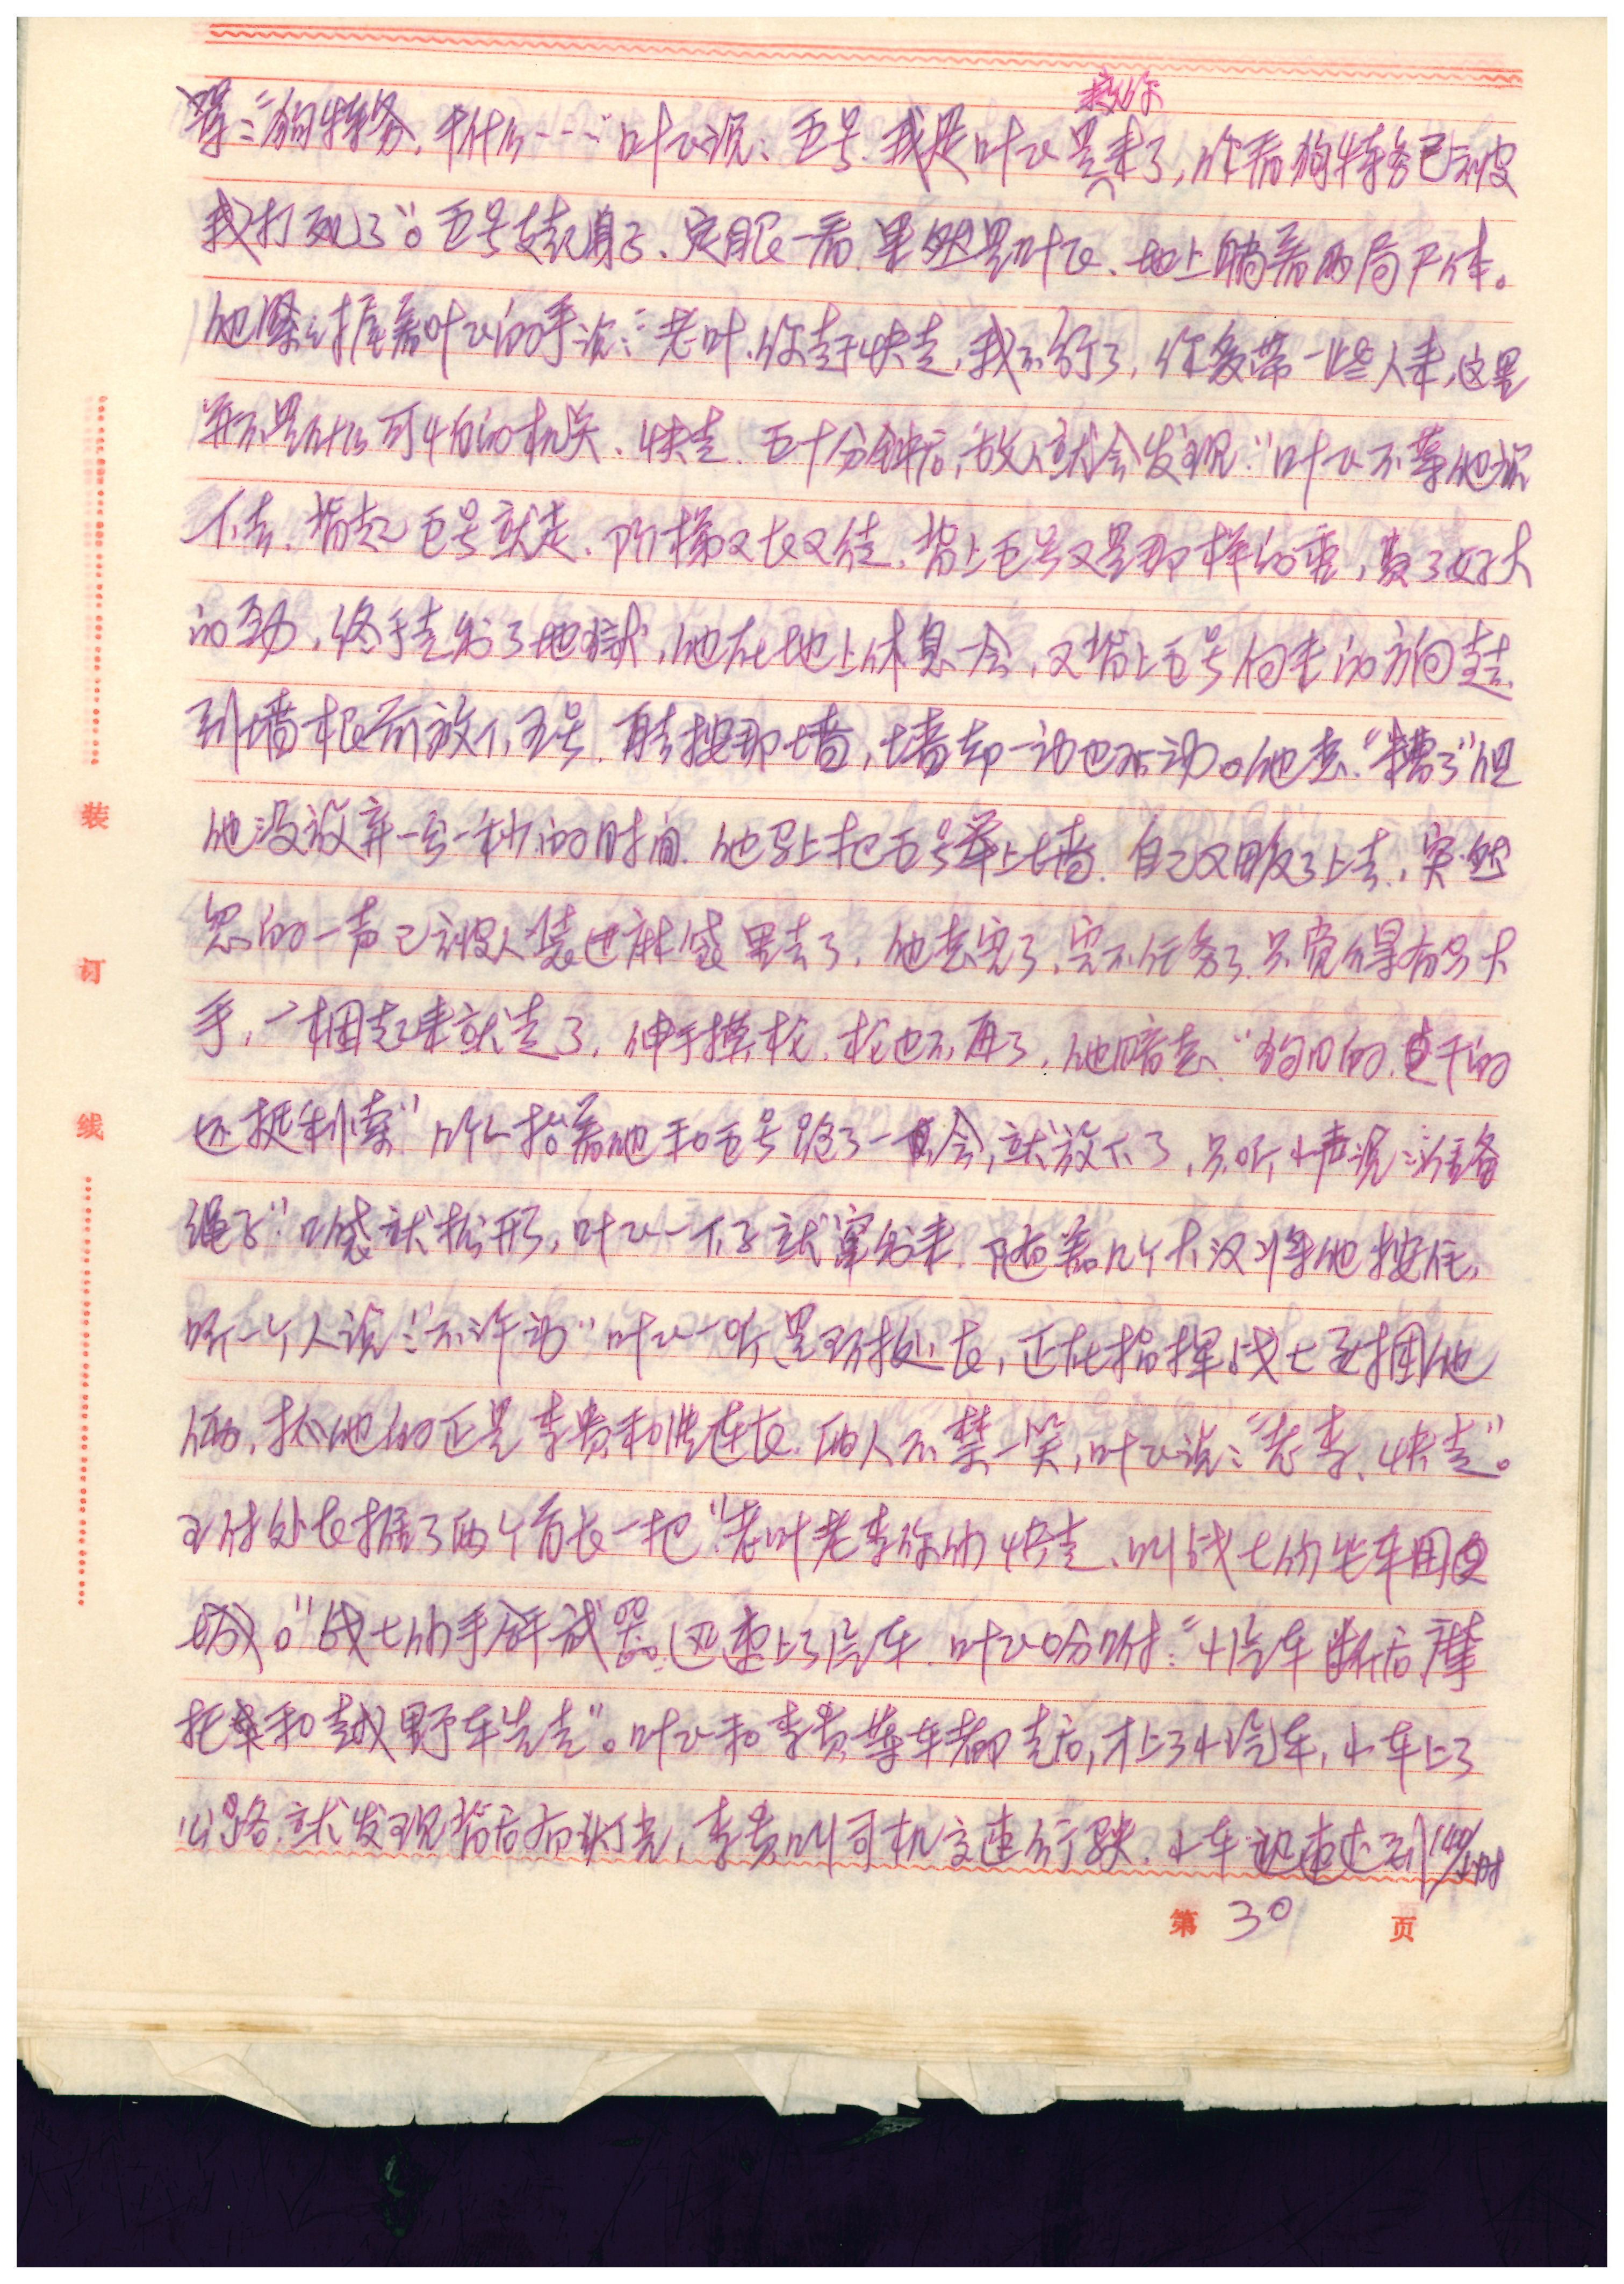 救你
骂：“狗特务，干什么……”叶飞说：五号，我是叶飞是来了，你看狗特务已被
我打死了”。五号支起身子、定眼一看，果然是叶飞、地上躺着两局尸体。
他紧紧握着叶飞的手说：“老叶，你赶快走，我不行了，你多带一些人来，这里
并不是什么可怕的机关、快走，五十分钟后，敌人就会发现。”叶飞不等他说
下去，背起五号就走、阶梯又长又陡，背上五号又是那样的重，费了好大
的劲，终于走出了地狱，他在地上休息一会，又背上五号向来的方向走去
到墙根前放下五号，再去摸那墙，墙却一动也不动。他想：“糟了”但
他没放弃一分一秒的时间，他马上把五号举上墙，自己又爬了上去，突然
忽的一声已被人装进麻袋里去了，他想完了，完不任务了，只觉得有只大
手，一捆起来就走了，伸手摸枪，枪也不再了，他暗想，“狗日的，干的
还挺利索”几个抬着他和五号跑了一会，就放下了，只听小声说：“准备
绳子”口袋就松开，叶飞一下子就窜出来，随着几个大汉将他按住，
听一个人说：“不许动”叶飞一听是王付处长，正在指挥战士要捆他
俩，抓他的正是李贵和洪连长，两人不禁一笑，叶飞说：“老李、快走”。
王付处长握了两个首长一把“老叶老李你们快走，叫战士们坐车回
城。”战士们手解武器，迅速上了汽车，叶飞吩咐：“小汽车断后摩
托车和越野车先走”。叶飞和李贵等车都走后，才上了小汽车，小车上了
公路，就发现背后有灯光，李贵叫司机高速行驶，小车迅速达到140/小时
第 30 页
装
订
线